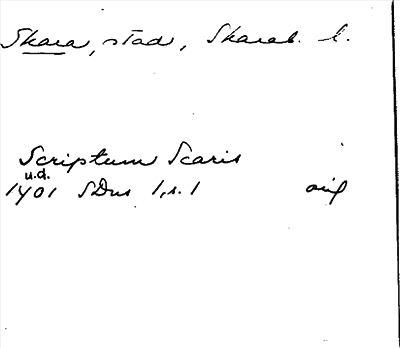 Skara, stad, Skarab. l.
Scriptum Scaris
u.d.
1401 SDns 1, s. 1 orig